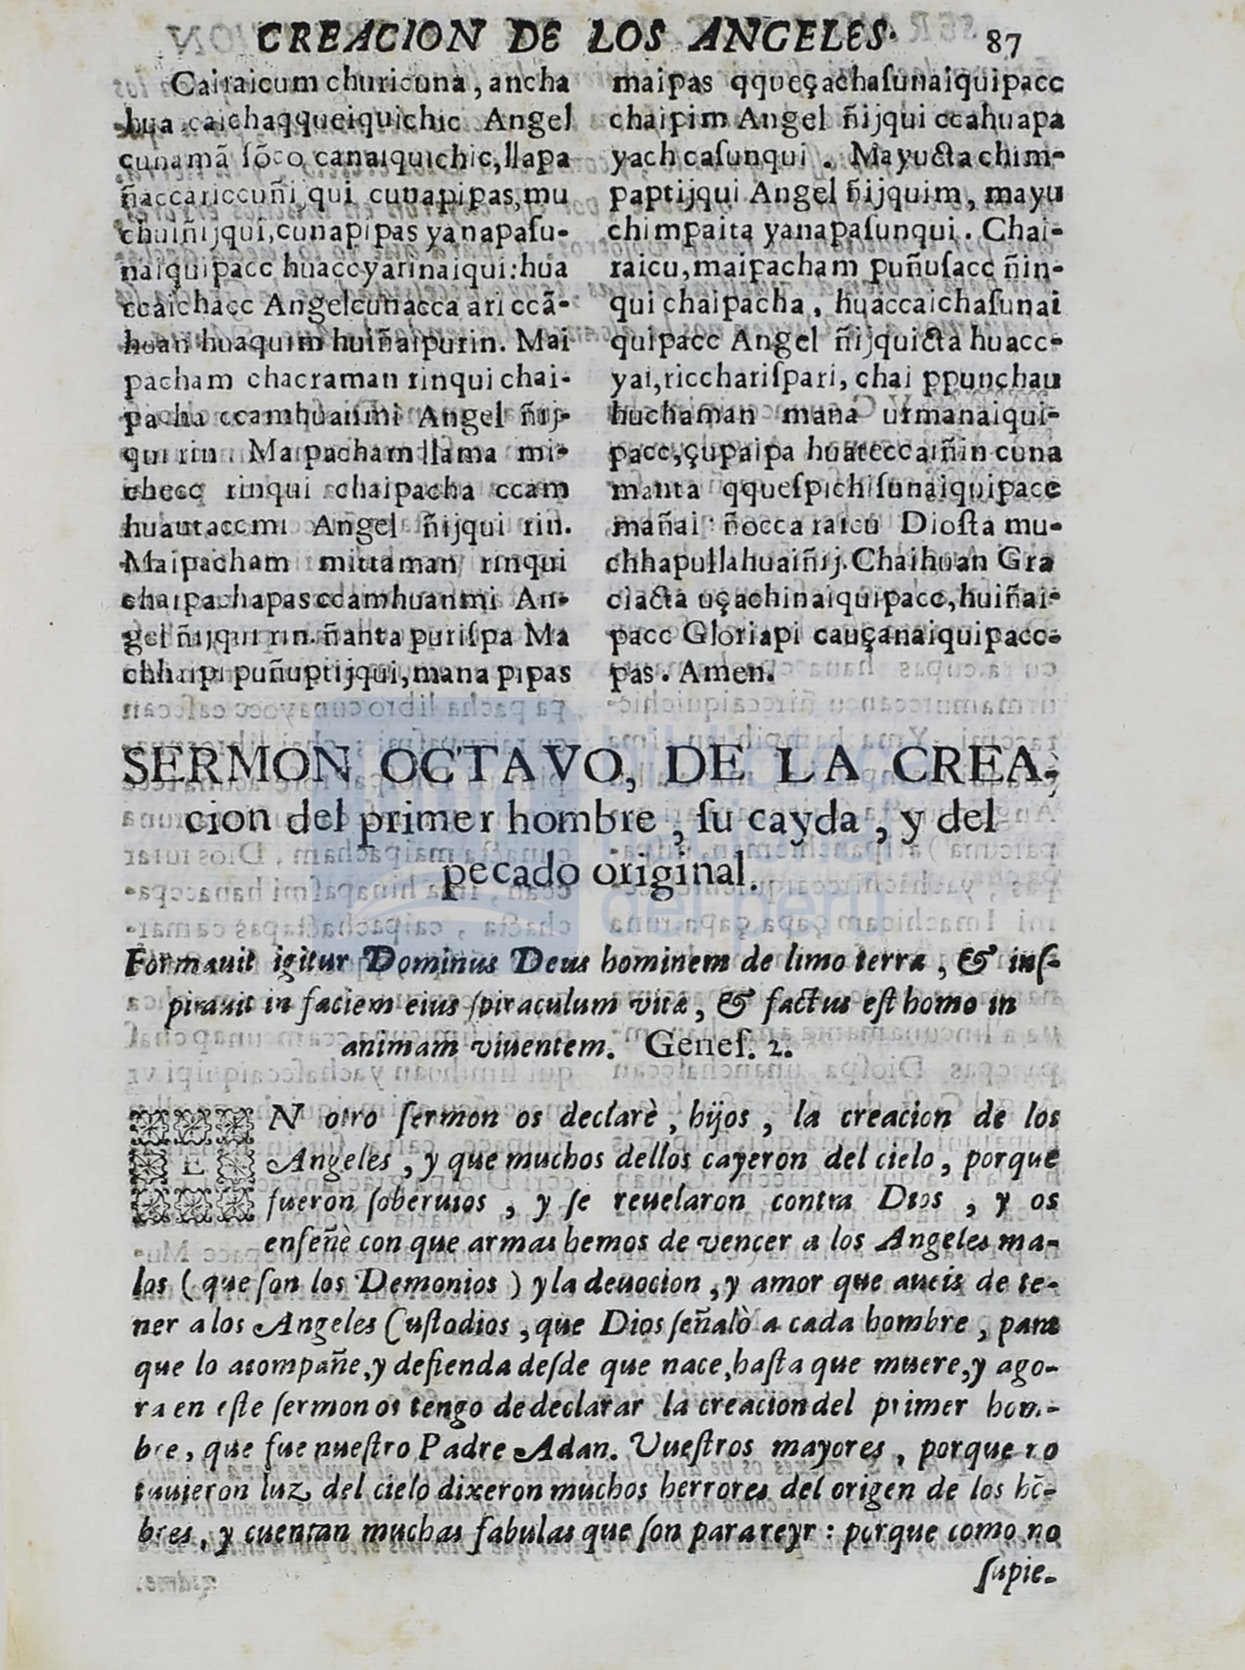 CREACION DE LOS ANGELES. 87
Cairaicum churicuna, ancha
hua caichaqqueiquichic Angel
cunamã ſõco canaiquichic, llapa
ñaccariccuñi, qui cunapipas, mu
chuiñijqui, cunapipas yanapaſu-
naiquipacc huaccyarinaiqui: hua
ccaichacc Angelcunacca ari ccã-
huan huaquim huiñaipurin. Mai
pacham chacraman rinqui chai-
pacha ccamhuanmi Angel ñij-
qui rin. Maipacham llama mi-
checc rinqui chaipacha ccam
huantaccmi Angel ñijqui rin.
Maipacham mittaman rinqui
chaipachapas ccamhuanmi An-
gel ñijqui rin. ñanta puriſpa Ma
chhaipi puñuptijqui, mana pipas
maipas qqueçachaſunaiquipacc
chaipim Angel ñijqui ccahuapa
yach caſunqui. Mayucta chim-
paptijqui Angel ñijquim, mayu
chimpaita yanapaſunqui. Chai-
raicu, maipacham puñuſacc ñin-
qui chaipacha, huaccaichaſunai
quipacc Angel ñijquicta huacc-
yai, ricchariſpari, chai ppunchau
huchaman mana urmanaiqui-
pacc, çupaipa huateccaiñin cuna
manta qqueſpichiſunaiquipacc
mañai: ñocca raicu Dioſta mu-
chhapullahuaiñij. Chaihuan Gra
ciacta uçachinaiquipacc, huiñai-
pacc Gloriapi cauçanaiquipacc-
pas. Amen.
SERMON OCTAVO, DE LA CREA-
cion del primer hombre, ſu cayda, y del
pecado original.
Formauit igitur Dominus Deus hominem de limo terra, & inſ-
pirauit in faciem eius ſpiraculum vitæ, & factus eſt homo in
animam viuentem. Geneſ. 2.
EN otro ſermon os declarè, hijos, la creacion de los
Angeles, y que muchos dellos cayeron del cielo, porque
fueron ſoberuios, y ſe reuelaron contra Dios, y os
enſeñè con que armas hemos de vencer a los Angeles ma-
los (que ſon los Demonios) y la deuocion, y amor que aueis de te-
ner a los Angeles Cuſtodios, que Dios ſeñalò a cada hombre, para
que lo acompañe, y defienda deſde que nace, haſta que muere, y ago-
ra en eſte ſermon os tengo de declarar la creacion del primer hom-
bre, que fue nueſtro Padre Adan. Vueſtros mayores, porque no
tuuieron luz del cielo dixeron muchos herrores del origen de los hõ-
bres, y cuentan muchas fabulas que ſon para reyr: porque como no
ſupie-